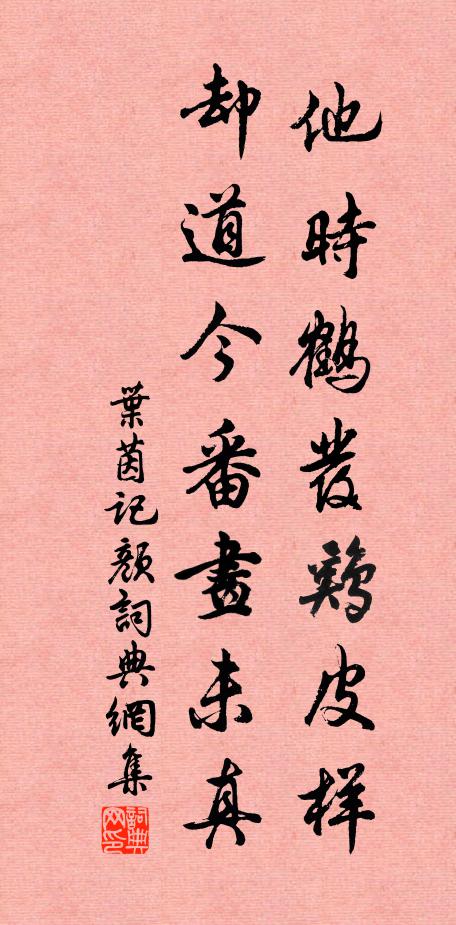 他時鶴發鷄皮樣
却道今番畫未真
葉茵記顏詞典網集
詞典网印